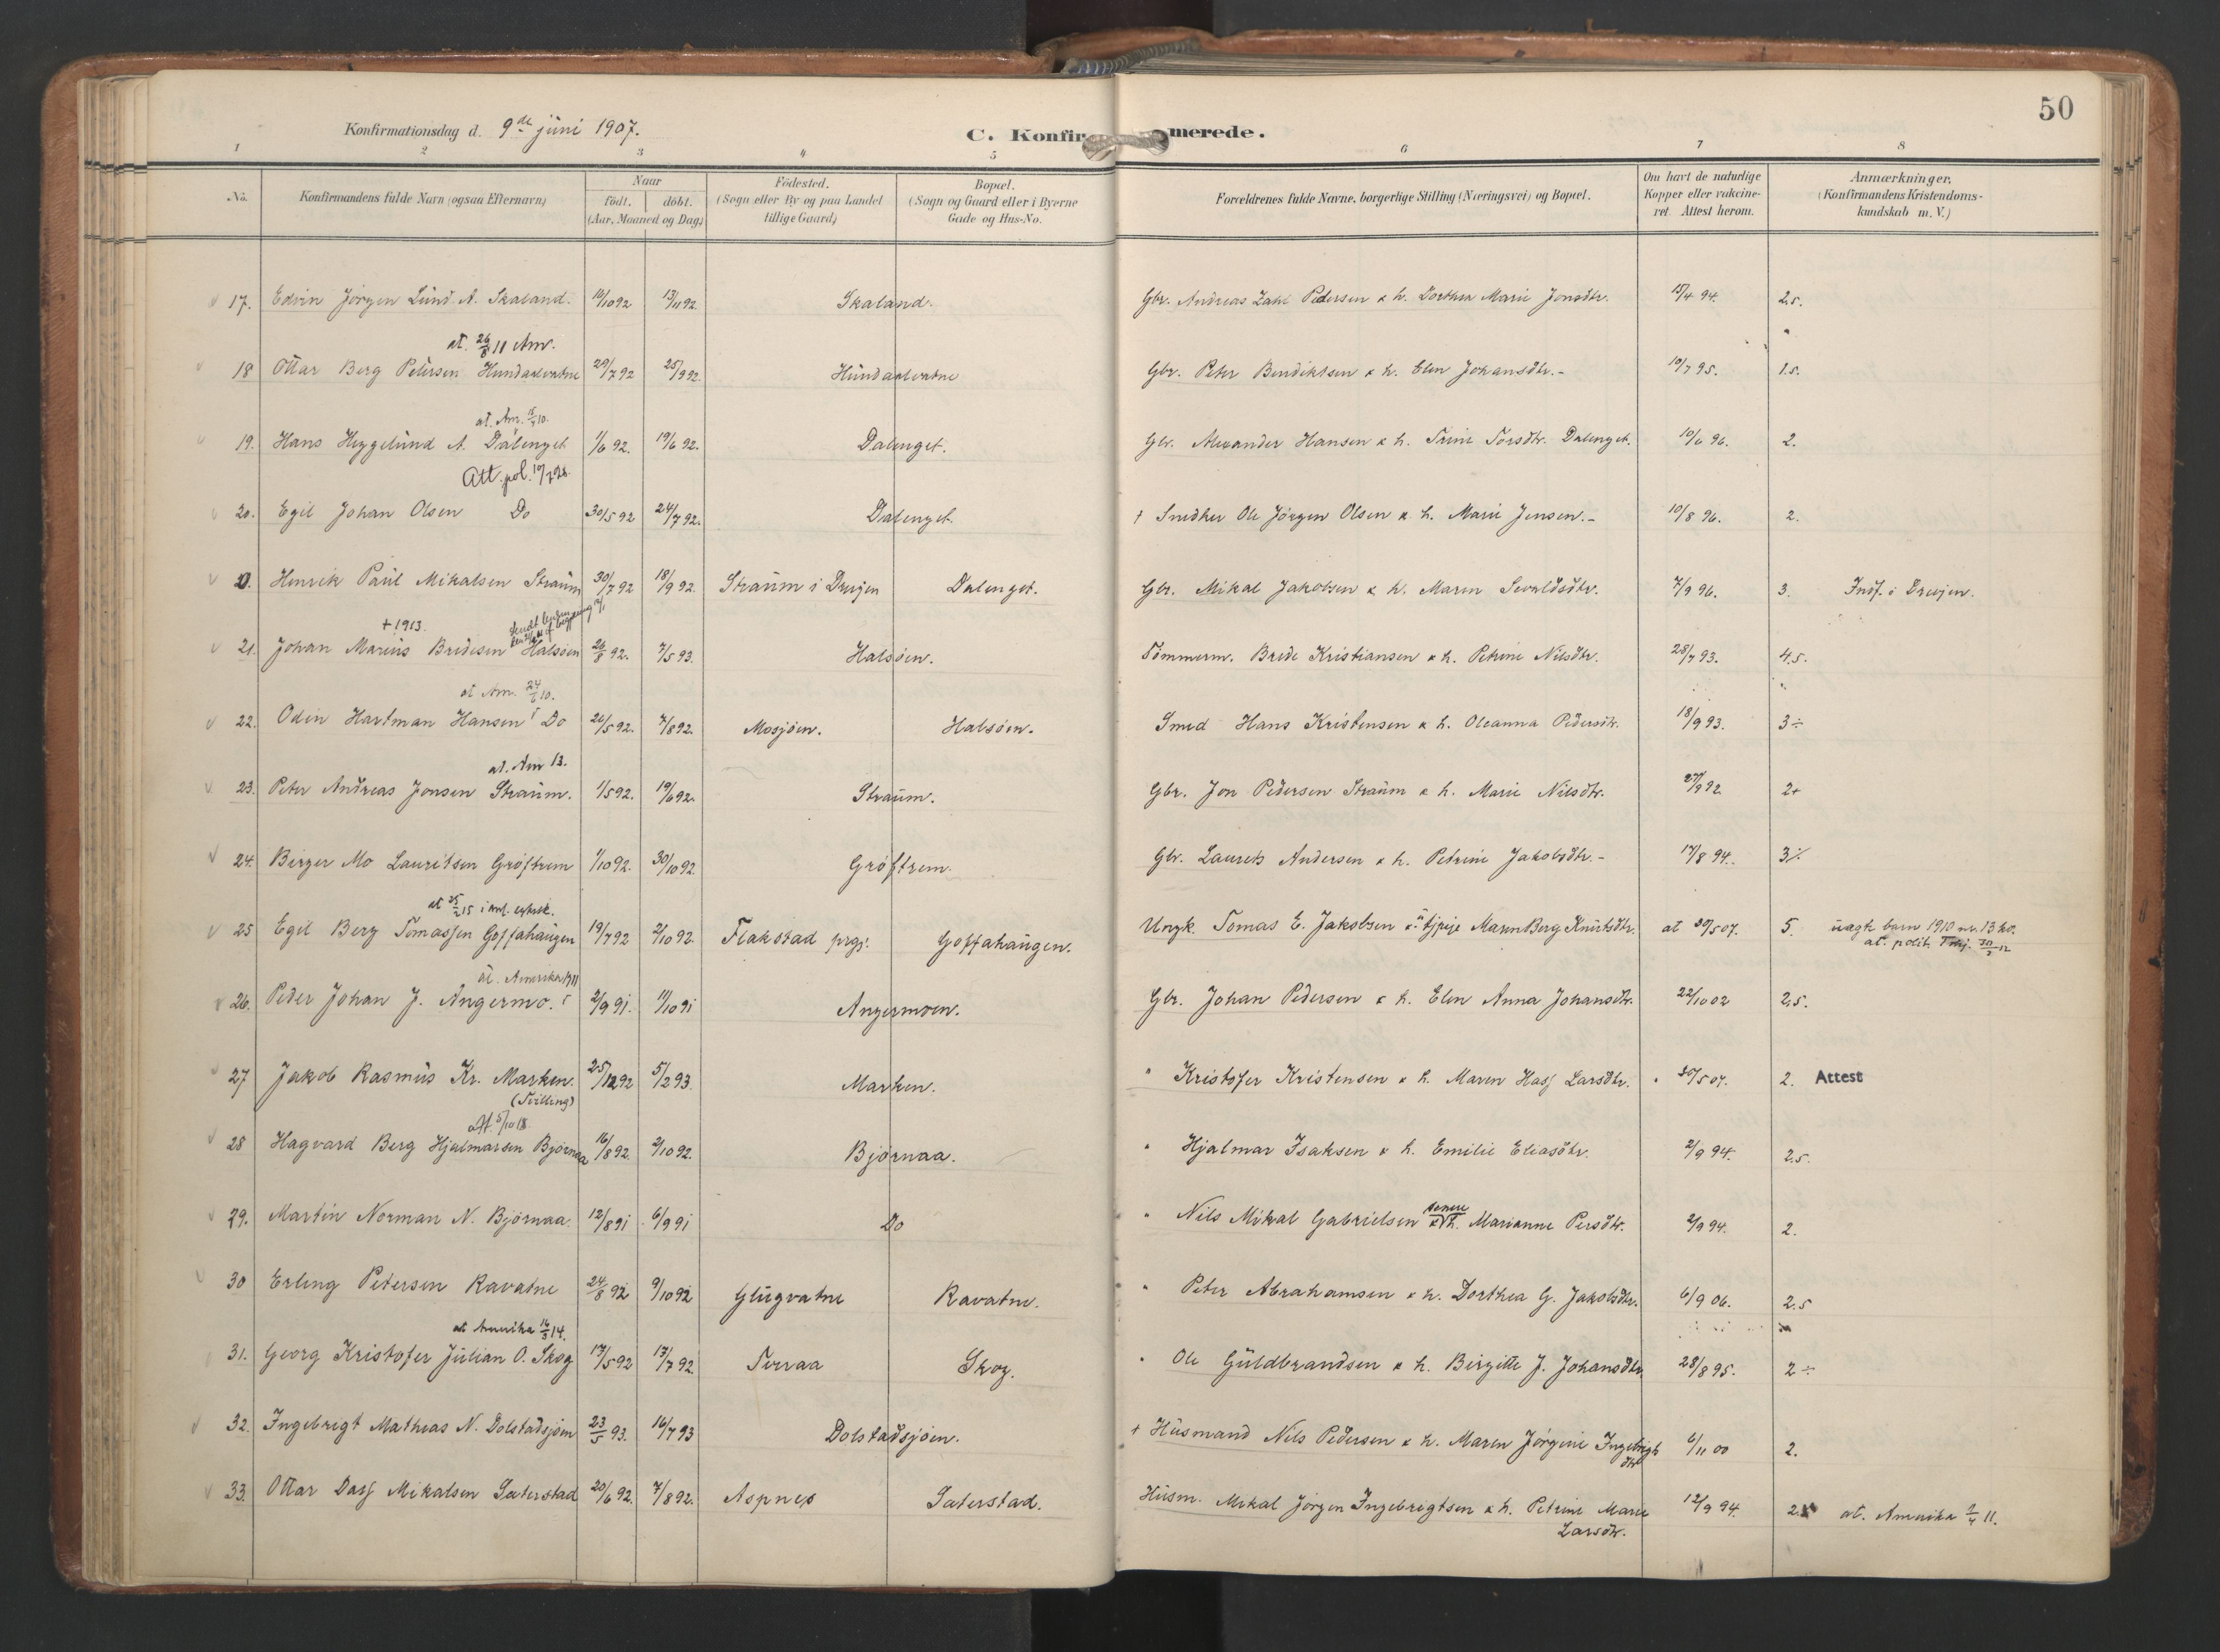 50
Konfirmationsdag d. 9de juni 1907.
C. Konfirmerede.
1 2 3 4 5 6 7 8
No. Konfirmandens fulde Navn (ogsaa Efternavn) Naar født. døbt. (Aar, Maaned og Dag) Fødested. (Sogn eller By og paa Landet tillige Gaard) Bopæl. (Sogn og Gaard eller i Byerne Gade og Hus-No. Forældrenes fulde Navne, borgerlige Stilling (Næringsvei) og Bopæl. Om havt de naturlige Kopper eller vakcineret. Attest herom. Anmærkninger, (Konfirmandens Kristendomskundskab m. V.)
17. Edvin Jörgen Lünd A. Skaland. 16/10 92 13/11 92. Skaland. Gbr. Andreas Zahl Pedersen & h. Dorthea Marie Jonsdtr. 15/4 94. 2.5.
at. 26/8 11 Am.
18 Ottar Berg Petersen Hundaalvatne 29/7 92 25/9 92. Hündaalvatne Gbr. Peter Bendiktsen & h. Elen Johansdtr.- 10/7 95. 1.5.
at. Am. 15/4 10.
19. Hans Heggelünd A. Dalenget 1/6 92. 19/6 92. Dalenget. Gbr. Alexander Hansen & h. Trine Torsdtr. Dalenget. 10/6 96. 2.
Att. pol. 10/7 28.
20. Egil Johan Olsen Do 30/5 92 24/7 92. Dalenget. + Snedker Ole Jörgen Olsen & h. Marie Jensen.- 10/8 96. 2.
Henrik Paül Mikalsen Straüm 30/7 92 18/9 92. Straüm i Drevjen Dalenget. Gbr. Mikal Jakobsen & h. Maren Sevaldsdtr. 7/9 96. 3. Indf. i Drevjen.
+ 1913.
21. Johan Mariüs Bredesen Halsöen 26/8 92. 7/5 93. Halsöen. Tömmerm. Brede Kristiansen & h. Petrine Nilsdtr. 28/7 93. 4.5.
at Am. 24/6 10.
22. Odin Hartman Hansen Do 26/5 92. 7/8 92. Mosjöen. Halsöen. Smed Hans Kristensen & h. Oleanna Pedersdtr. 18/9 93. 3÷
at. Am 13.
23. Peter Andreas Jonsen Straüm. 1/5 92. 19/6 92. Straüm. Gbr. Jon Pedersen Straüm & h. Marie Nilsdtr. 27/9 92 2+
24. Birger Mo Lauritsen Gröftrem 1/10 92. 30/10 92. Gröftrem. Gbr. Laurits Andersen & h. Petrine Jakobsdtr.- 17/8 94. 3÷
at 25/2 15
25 Egil Berg Tomassen Goffahaügen 19/7 92 2/10 92. Flakstad prgj. Goffahaügen. Ungk. Tomas E. Jakobsen & tjpige Maren Berg Knütsdtr. at 30/5 07. 5. üægte barn 1910 nr. 13 ko.
at. polit. 30/3 12
at. Amerika 1911
26. Peder Johan J. Angermo. 2/9 91. 11/10 91 Angermoen. Gbr. Johan Pedersen & h. Elen Anna Johansdtr. 22/10 02 2.5.
27 Jakob Rasmüs Kr. Marken. 25/12 92 5/2 93. Marken. " Kristofer Kristensen & h. Maren Hass Larsdtr. " 30/5 07. 2. Attest
(Tvilling)
att. 5/10 18
28 Hagvard Berg Hjalmarsen Bjørnaa 16/8 92. 2/10 92. Bjørnaa. " Hjalmar Isaksen & h. Emilie Eliasdtr. 2/9 94. 2.5.
29. Martin Norman N. Bjørnaa. 12/8 91 6/9 91 Do " Nils Mikal Gabrielsen & senere h. Marianne Persdtr. 2/9 94. 2.
30 Erling Petersen Ravatne 24/8 92 9/10 92 Glügvatne Ravatne. " Peter Abrahamsen & h. Dorthea G. Jakobsdtr. 6/9 06. 2.5
at Amerika 16/3 14.
31. Georg Kristofer Jülian O. Skog 17/5 92 17/7 92. Tverraa Skog. " Ole Güldbrandsen & h. Birgitte J. Johansdtr. 28/8 95. 2÷
32. Ingebrigt Mathias N. Dolstadsjøen 23/5 93. 16/7 93 Dolstadsjöen. + Hüsmand Nils Pedersen & h. Maren Jörgine Ingebrigtsdtr 6/11 00 2.
33. Ottar Dass Mikalsen Sæterstad 20/6 92. 7/8 92. Aspnes Sæterstad. Hüsm. Mikal Jörgen Ingebrigtsen & h. Petrine Marie Larsdtr. 12/9 94. 2.5 at. Amerika 7/4 11.